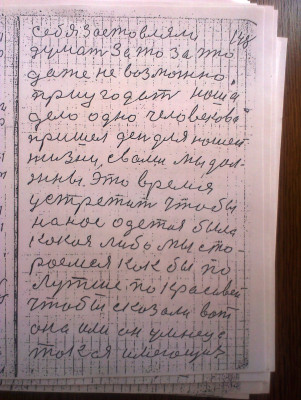 148
себя заставлям
думат за то за што
даже не возможно,
приугодат наша
дело одно человекова
пришел ден для нашей
жизни, свами мы дол-
жны. Это время
устретит чтобы
на нас одетая была
какая либо мы сто
роемся как бы по
лутше по красивей
чтобы сказали вот
она или он умнеца
такая имеющия